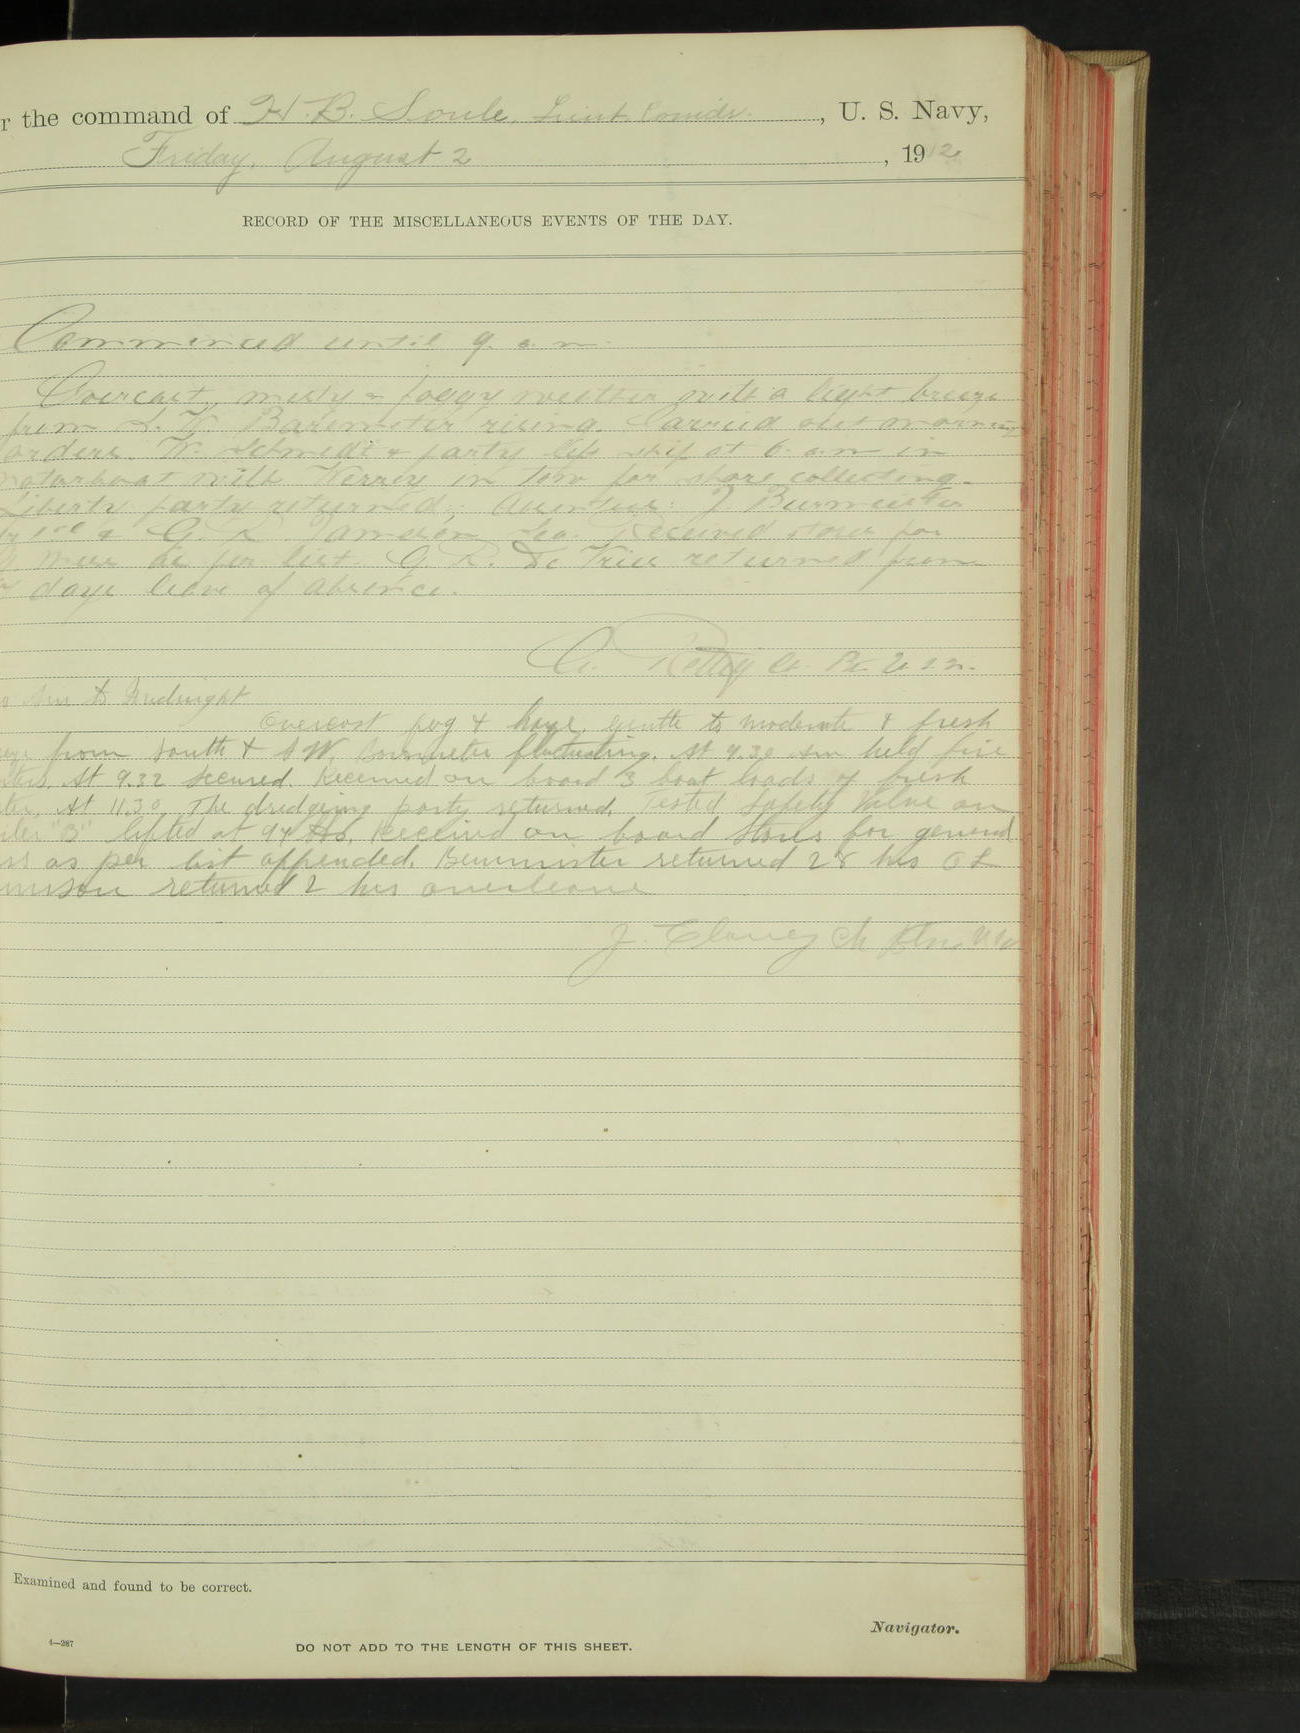 r the command of H. B. Soule, Lieut. Comdr., U. S. Navy,
Friday, August 2, 1912
RECORD OF THE MISCELLANEOUS EVENTS OF THE DAY.
Commenced until 9 a. m.
Overcast, misty & foggy weather with a light breeze
from S. W. Barometer rising. Carried out morning
orders. W. Schmidt & party left ship at 6. a. m in
motorboat with Wherry in tow for shore collecting.
Liberty party returned; Absentees: J Burmeister
& G. R. Jamison Sea. Received stores for
as per list. G. R. De Vries returned from
days leave of absence.
A. Pettij
Am to Midnight
Overcast fog & haze gentle to moderate & fresh
from South & SW. Barometer fluctuating. At 9.30 Am held fire
At 9.32 secured. Received on board 3 boat loads of fresh
At 11.30 The dredging party returned. Tested Safety Valve on
"B" lifted at 94 lbs. Received on board Stores for general
as per list appended. Burmister returned 28 hrs O L
returned 2 hrs overleave
J. Clancy Ch Btn. USN
Examined and found to be correct.
Navigator.
4—287
DO NOT ADD TO THE LENGTH OF THIS SHEET.